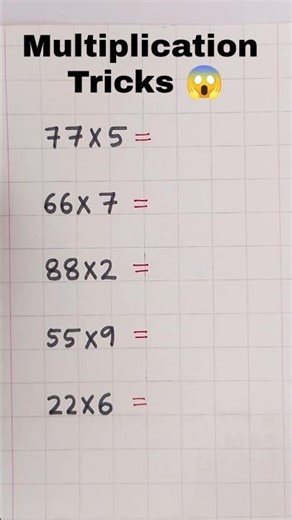 Multiplication
Tricks 😱
77x5 =
66x7 =
88x2 =
55x9 =
22x6 =